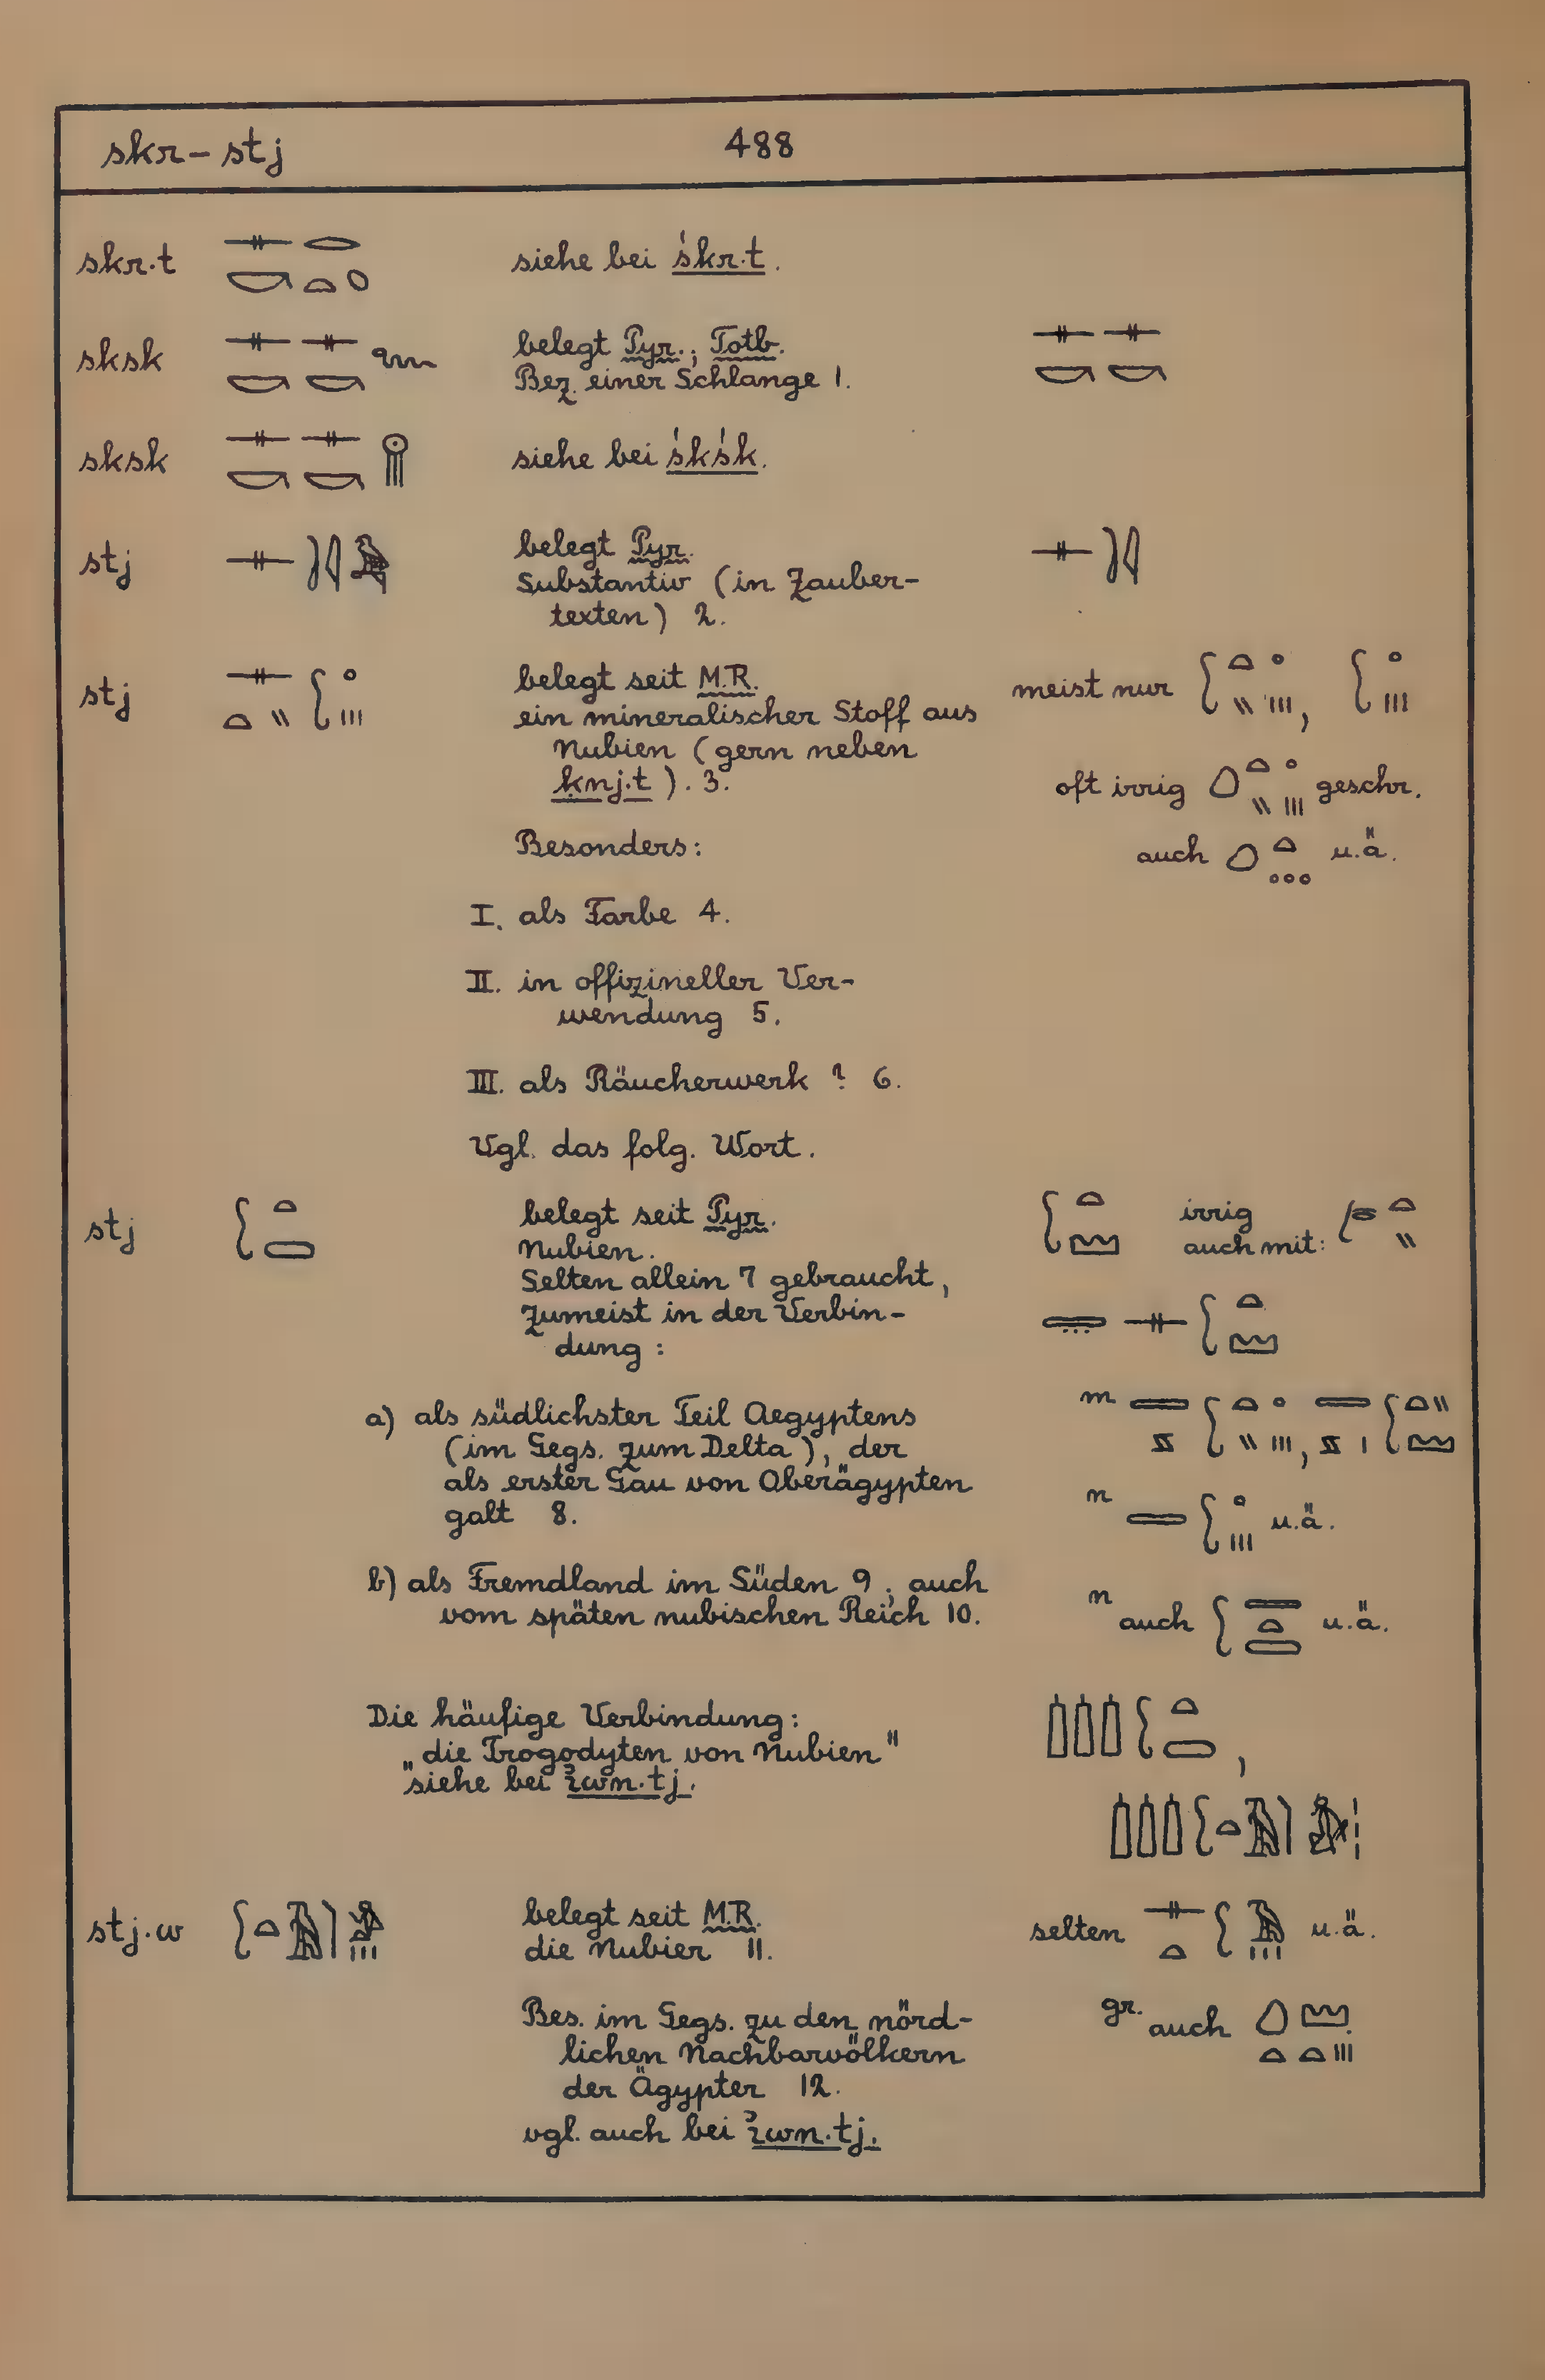 skr – stj 488
skr.t siehe bei śkr.t.
sksk belegt Pyr.; Totb.
Bez. einer Schlange 1.
sksk siehe bei śkśk.
stj belegt Pyr.
Substantiv (in Zauber-
texten) 2.
stj belegt seit M.R. meist nur
ein mineralischer Stoff aus
Nubien (gern neben
ḳnj.t). 3. oft irrig geschr.
Besonders: auch u.ä.
I. als Farbe 4.
II. in offizineller Ver-
wendung 5.
III. als Räucherwerk ? 6.
Vgl. das folg. Wort.
stj belegt seit Pyr. irrig
Nubien. auch mit:
Selten allein 7 gebraucht,
zumeist in der Verbin-
dung:
a) als südlichster Teil Aegyptens
(im Gegs. zum Delta), der
als erster Gau von Oberägypten
galt 8. n u.ä.
b) als Fremdland im Süden 9; auch
vom späten nubischen Reich 10. n auch u.ä.
Die häufige Verbindung:
„die Trogodyten von Nubien"
siehe bei ꜣiwn.tj.
stj.w belegt seit M.R. selten u.ä.
die Nubier 11.
Bes. im Gegs. zu den nörd- gr. auch
lichen Nachbarvölkern
der Ägypter 12.
vgl. auch bei ꜣiwn.tj.